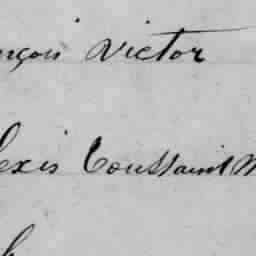 nçois Victor
lexis Toussaint M